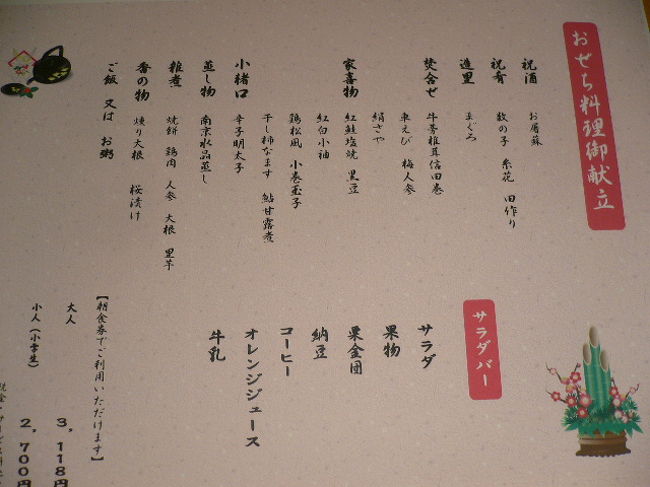 おせち料理御献立
祝酒 お屠蘇
祝肴 数の子 糸花 田作り
造里 まぐろ
焚合せ 牛蒡椎茸信田巻
車えび 梅人参
絹さや
家喜物 紅鮭塩焼 黒豆
紅白小袖
鶏松風 小巻玉子
干し柿なます 鮎甘露煮
小猪口 辛子明太子
蒸し物 南京水晶蒸し
雑煮 焼餅 鶏肉 人参 大根 里芋
香の物 燻り大根 桜漬け
ご飯 又は お粥
サラダバー
サラダ
果物
栗金団
納豆
コーヒー
オレンジジュース
牛乳
【朝食券でご利用いただけます】
大人 3，118円
小人（小学生） 2，700円